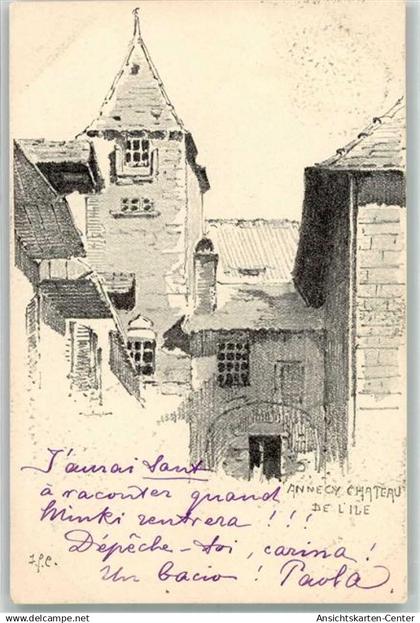 ANNECY CHATEAU
DE L'ILE
J'aurai tant
à raconter quand
Minki rentrera !!!
Dépêche-toi, carina !
Un bacio ! Paola
Ansichtskarten-Center.com